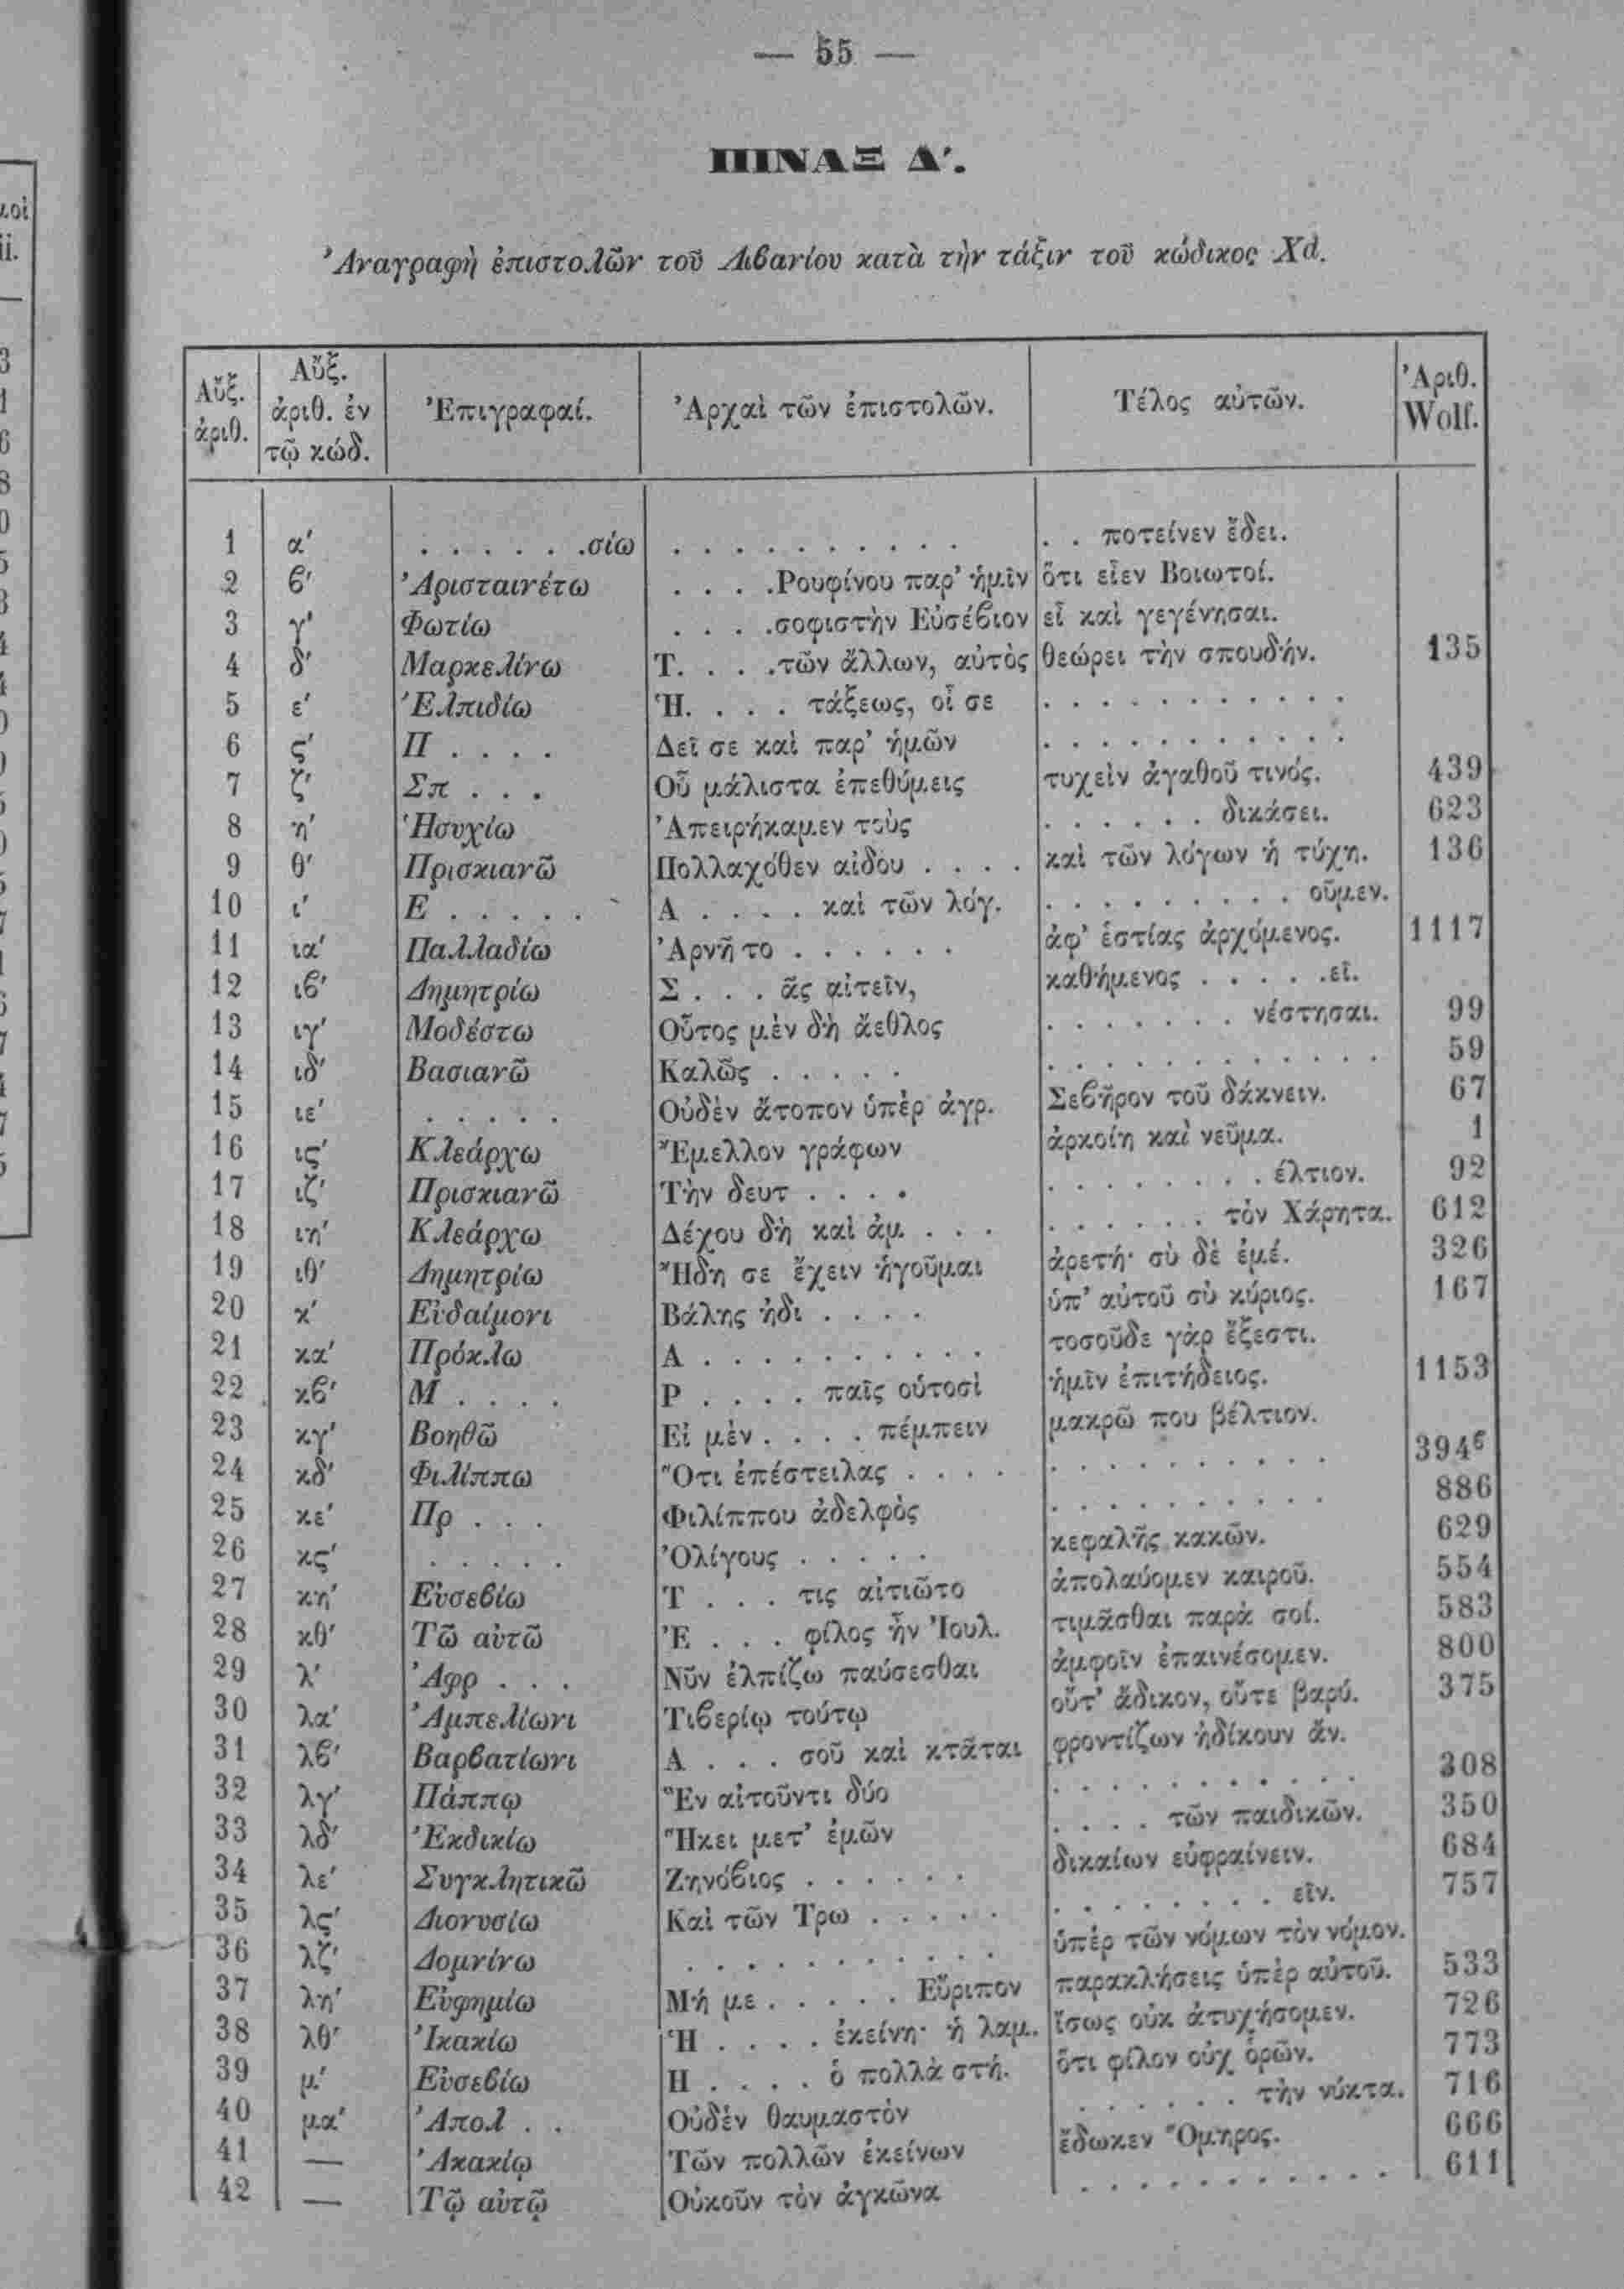 — 55 —
ΠΙΝΑΞ Δʹ.
Ἀναγραφὴ ἐπιστολῶν τοῦ Λιβανίου κατὰ τὴν τάξιν τοῦ κώδικος Xd.
Αὔξ. ἀριθ. Αὔξ. ἀριθ. ἐν τῷ κώδ. Ἐπιγραφαί. Ἀρχαὶ τῶν ἐπιστολῶν. Τέλος αὐτῶν. Ἀριθ. Wolf.
1 αʹ . . . . . .σίω . . . . . . . . . . . . ποτείνεν ἔδει.
2 ϐʹ Ἀρισταινέτω . . . .Ρουφίνου παρ' ἡμῖν ὅτι εἶεν Βοιωτοί.
3 γʹ Φωτίω . . . .σοφιστὴν Εὐσέϐιον εἶ καὶ γεγένησαι.
4 δʹ Μαρκελίνω Τ. . . .τῶν ἄλλων, αὐτὸς θεώρει τὴν σπουδήν. 135
5 εʹ Ἐλπιδίω Ἡ. . . . τάξεως, οἵ σε . . . . . . . . . . .
6 ςʹ Π . . . . Δεῖ σε καὶ παρ' ἡμῶν . . . . . . . . . . .
7 ζʹ Σπ . . . Οὗ μάλιστα ἐπεθύμεις τυχεὶν ἀγαθοῦ τινός. 439
8 ηʹ Ἡσυχίω Ἀπειρήκαμεν τοὺς . . . . . . δικάσει. 623
9 θʹ Πρισκιανῶ Πολλαχόθεν αἰδου . . . . καὶ τῶν λόγων ἡ τύχη. 136
10 ιʹ Ε . . . . . Α . . . . καὶ τῶν λόγ. . . . . . . . . . οῦμεν.
11 ιαʹ Παλλαδίω Ἀρνῆ το . . . . . . ἀφ' ἑστίας ἀρχόμενος. 1117
12 ιϐʹ Δημητρίω Σ . . . ᾶς αἰτεῖν, καθήμενος . . . . .εῖ.
13 ιγʹ Μοδέστω Οὗτος μὲν δὴ ἄεθλος . . . . . . . νέστησαι. 99
14 ιδʹ Βασιανῶ Καλῶς . . . . . . . . . . . . . . . . . 59
15 ιεʹ . . . . . Οὐδὲν ἄτοπον ὑπὲρ ἀγρ. Σεϐῆρον τοῦ δάκνειν. 67
16 ιςʹ Κλεάρχω Ἔμελλον γράφων ἀρκοίη καὶ νεῦμα. 1
17 ιζʹ Πρισκιανῶ Τὴν δευτ . . . . . . . . . . . . έλτιον. 92
18 ιηʹ Κλεάρχω Δέχου δὴ καὶ ἀμ. . . . . . . . . . τὸν Χάρητα. 612
19 ιθʹ Δημητρίω Ἤδη σε ἔχειν ἡγοῦμαι ἀρετή· σὺ δὲ ἐμέ. 326
20 κʹ Εὐδαίμονι Βάλης ἡδι . . . . ὑπ' αὐτοῦ σὺ κύριος. 167
21 καʹ Πρόκλω Α . . . . . . . . . . τοσοῦδε γὰρ ἔξεστι.
22 κϐʹ Μ . . . . Ρ . . . . παῖς οὑτοσὶ ἡμῖν ἐπιτήδειος. 1153
23 κγʹ Βοηθῶ Εἰ μὲν. . . . πέμπειν μακρῶ που βέλτιον.
24 κδʹ Φιλίππω Ὅτι ἐπέστειλας . . . . . . . . . . . . . . 394ϐ
25 κεʹ Πρ . . . Φιλίππου ἀδελφὸς . . . . . . . . . . 886
26 κςʹ . . . . . Ὀλίγους . . . . . κεφαλῆς κακῶν. 629
27 κηʹ Εὐσεϐίω Τ . . . τις αἰτιῶτο ἀπολαύομεν καιροῦ. 554
28 κθʹ Τῶ αὐτῶ Ἐ . . . φίλος ἦν Ἰουλ. τιμᾶσθαι παρὰ σοί. 583
29 λʹ Ἀφρ . . . Νῦν ἐλπίζω παύσεσθαι ἀμφοῖν ἐπαινέσομεν. 800
30 λαʹ Ἀμπελίωνι Τιϐερίῳ τούτῳ οὔτ' ἄδικον, οὔτε βαρύ. 375
31 λϐʹ Βαρϐατίωνι Α . . . σοῦ καὶ κτᾶται φροντίζων ἠδίκουν ἄν.
32 λγʹ Πάππῳ Ἓν αἰτοῦντι δύο . . . . . . . . . . . 308
33 λδʹ Ἐκδικίω Ἥκει μετ' ἐμῶν . . . . τῶν παιδικῶν. 350
34 λεʹ Συγκλητικῶ Ζηνόϐιος . . . . . . δικαίων εὐφραίνειν. 684
35 λςʹ Διονυσίω Καὶ τῶν Τρω . . . . . . . . . . . . . εῖν. 757
36 λζʹ Δομνίνω . . . . . . . . . . . ὑπὲρ τῶν νόμων τὸν νόμον.
37 ληʹ Εὐφημίω Μή με . . . . . Εὔριπον παρακλήσεις ὑπὲρ αὐτοῦ. 533
38 λθʹ Ἰκακίω Ἡ . . . . ἐκείνη· ἡ λαμ. ἴσως οὐκ ἀτυχήσομεν. 726
39 μʹ Εὐσεϐίω Η . . . . ὁ πολλὰ στή. ὅτι φίλον οὐχ ὁρῶν. 773
40 μαʹ Ἀπολ . . Οὐδὲν θαυμαστὸν . . . . . . τὴν νύκτα. 716
41 — Ἀκακίῳ Τῶν πολλῶν ἐκείνων ἔδωκεν Ὅμηρος. 666
42 — Τῷ αὐτῷ Οὐκοῦν τὸν ἀγκῶνα . . . . . . . . . . . 611